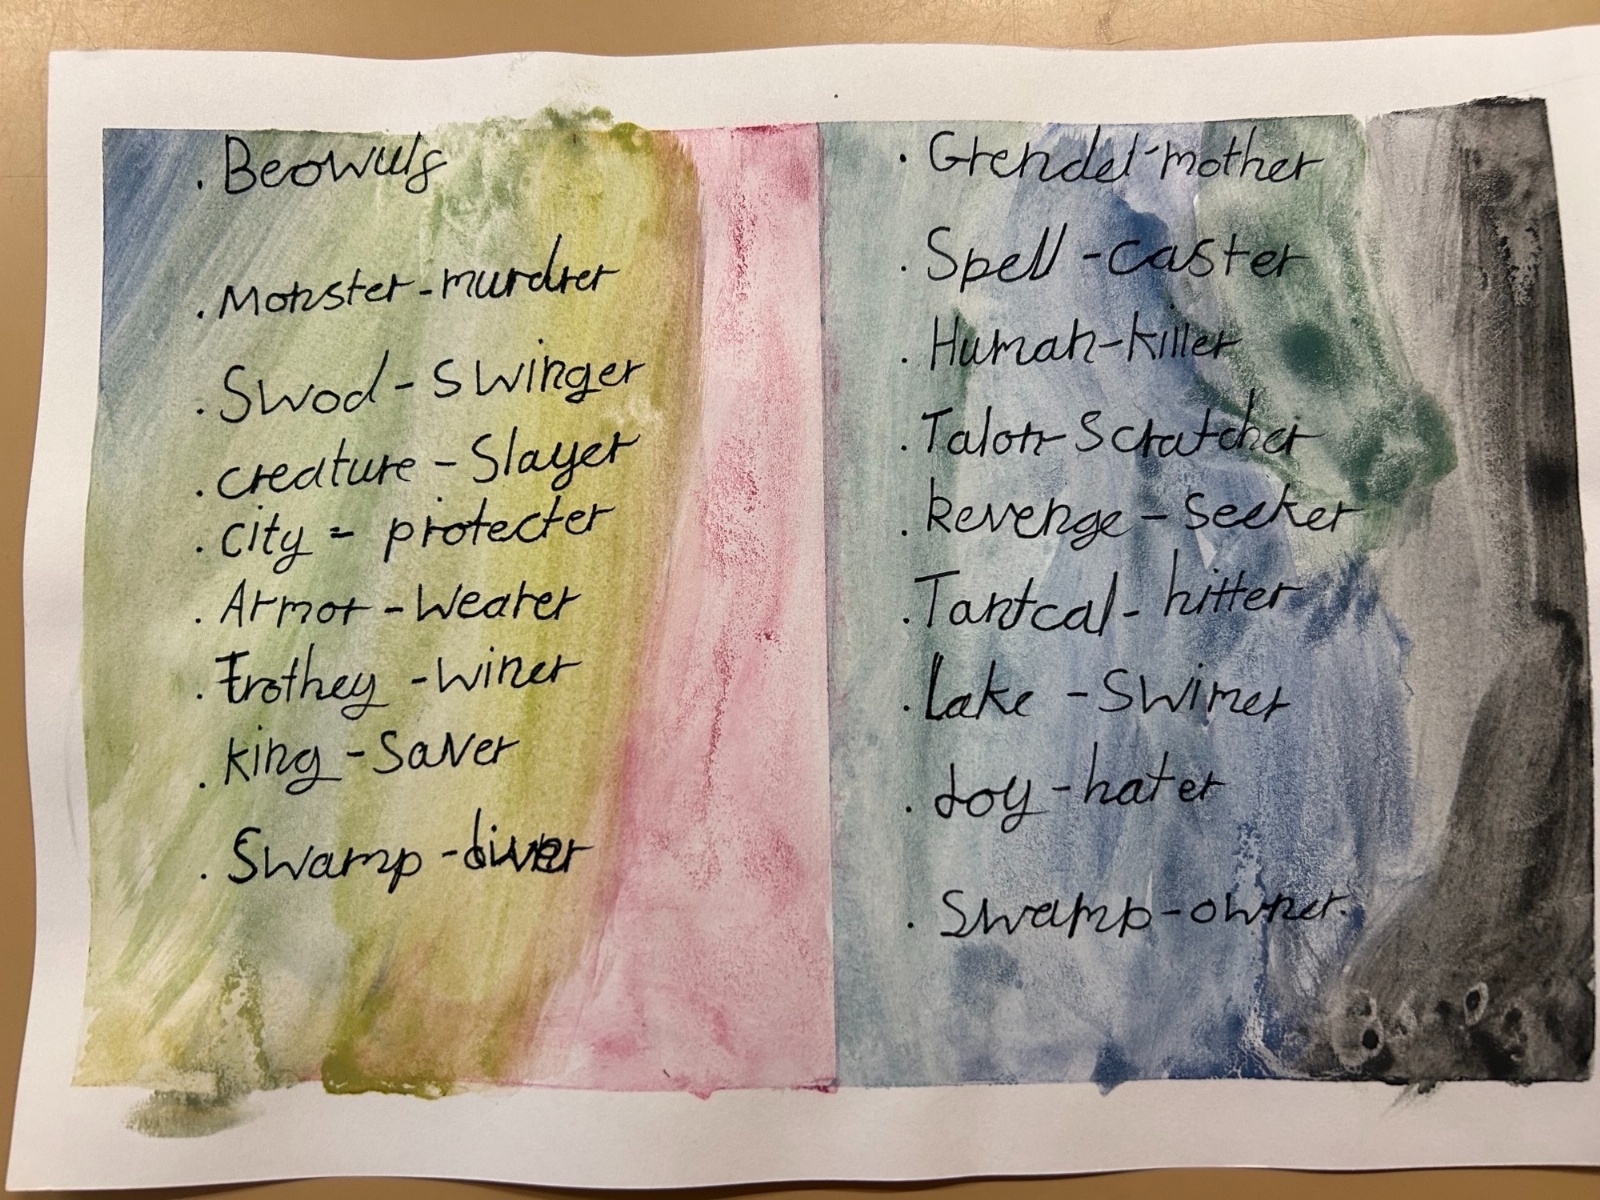 . Beowulf
. Monster-murdrer
. Swod - swinger
. creature - Slayer
. city = protecter
. Armor - Wearer
. Trothey - winer
. king - Saver
. Swamp - diver
. Grendel-mother
. Spell - caster
. Human-killer
. Talon-Scratcher
. Revenge - Seeker
. Tantcal - hitter
. Lake - Swimer
. Joy - hater
. Swamp-owner.